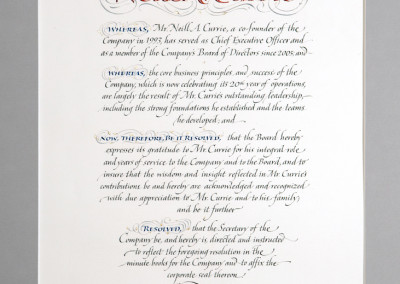 Neill A. Currie
WHEREAS, Mr. Neill A. Currie, a co-founder of the
Company in 1993 has served as Chief Executive Officer and
as a member of the Company's Board of Directors since 2005, and
WHEREAS, the core business principles and success of the
Company, which is now celebrating its 20th year of operations,
are largely the result of Mr. Currie's outstanding leadership,
including the strong foundations he established and the teams
he developed; and
NOW, THEREFORE, BE IT RESOLVED, that the Board hereby
expresses its gratitude to Mr. Currie for his integral role
and years of service to the Company and to the Board, and to
insure that the wisdom and insight reflected in Mr. Currie's
contributions be and hereby are acknowledged and recognized
with due appreciation to Mr. Currie and to his family;
and be it further
RESOLVED, that the Secretary of the
Company be, and hereby is directed and instructed
to reflect the foregoing resolution in the
minute books for the Company and to affix the
corporate seal thereon.